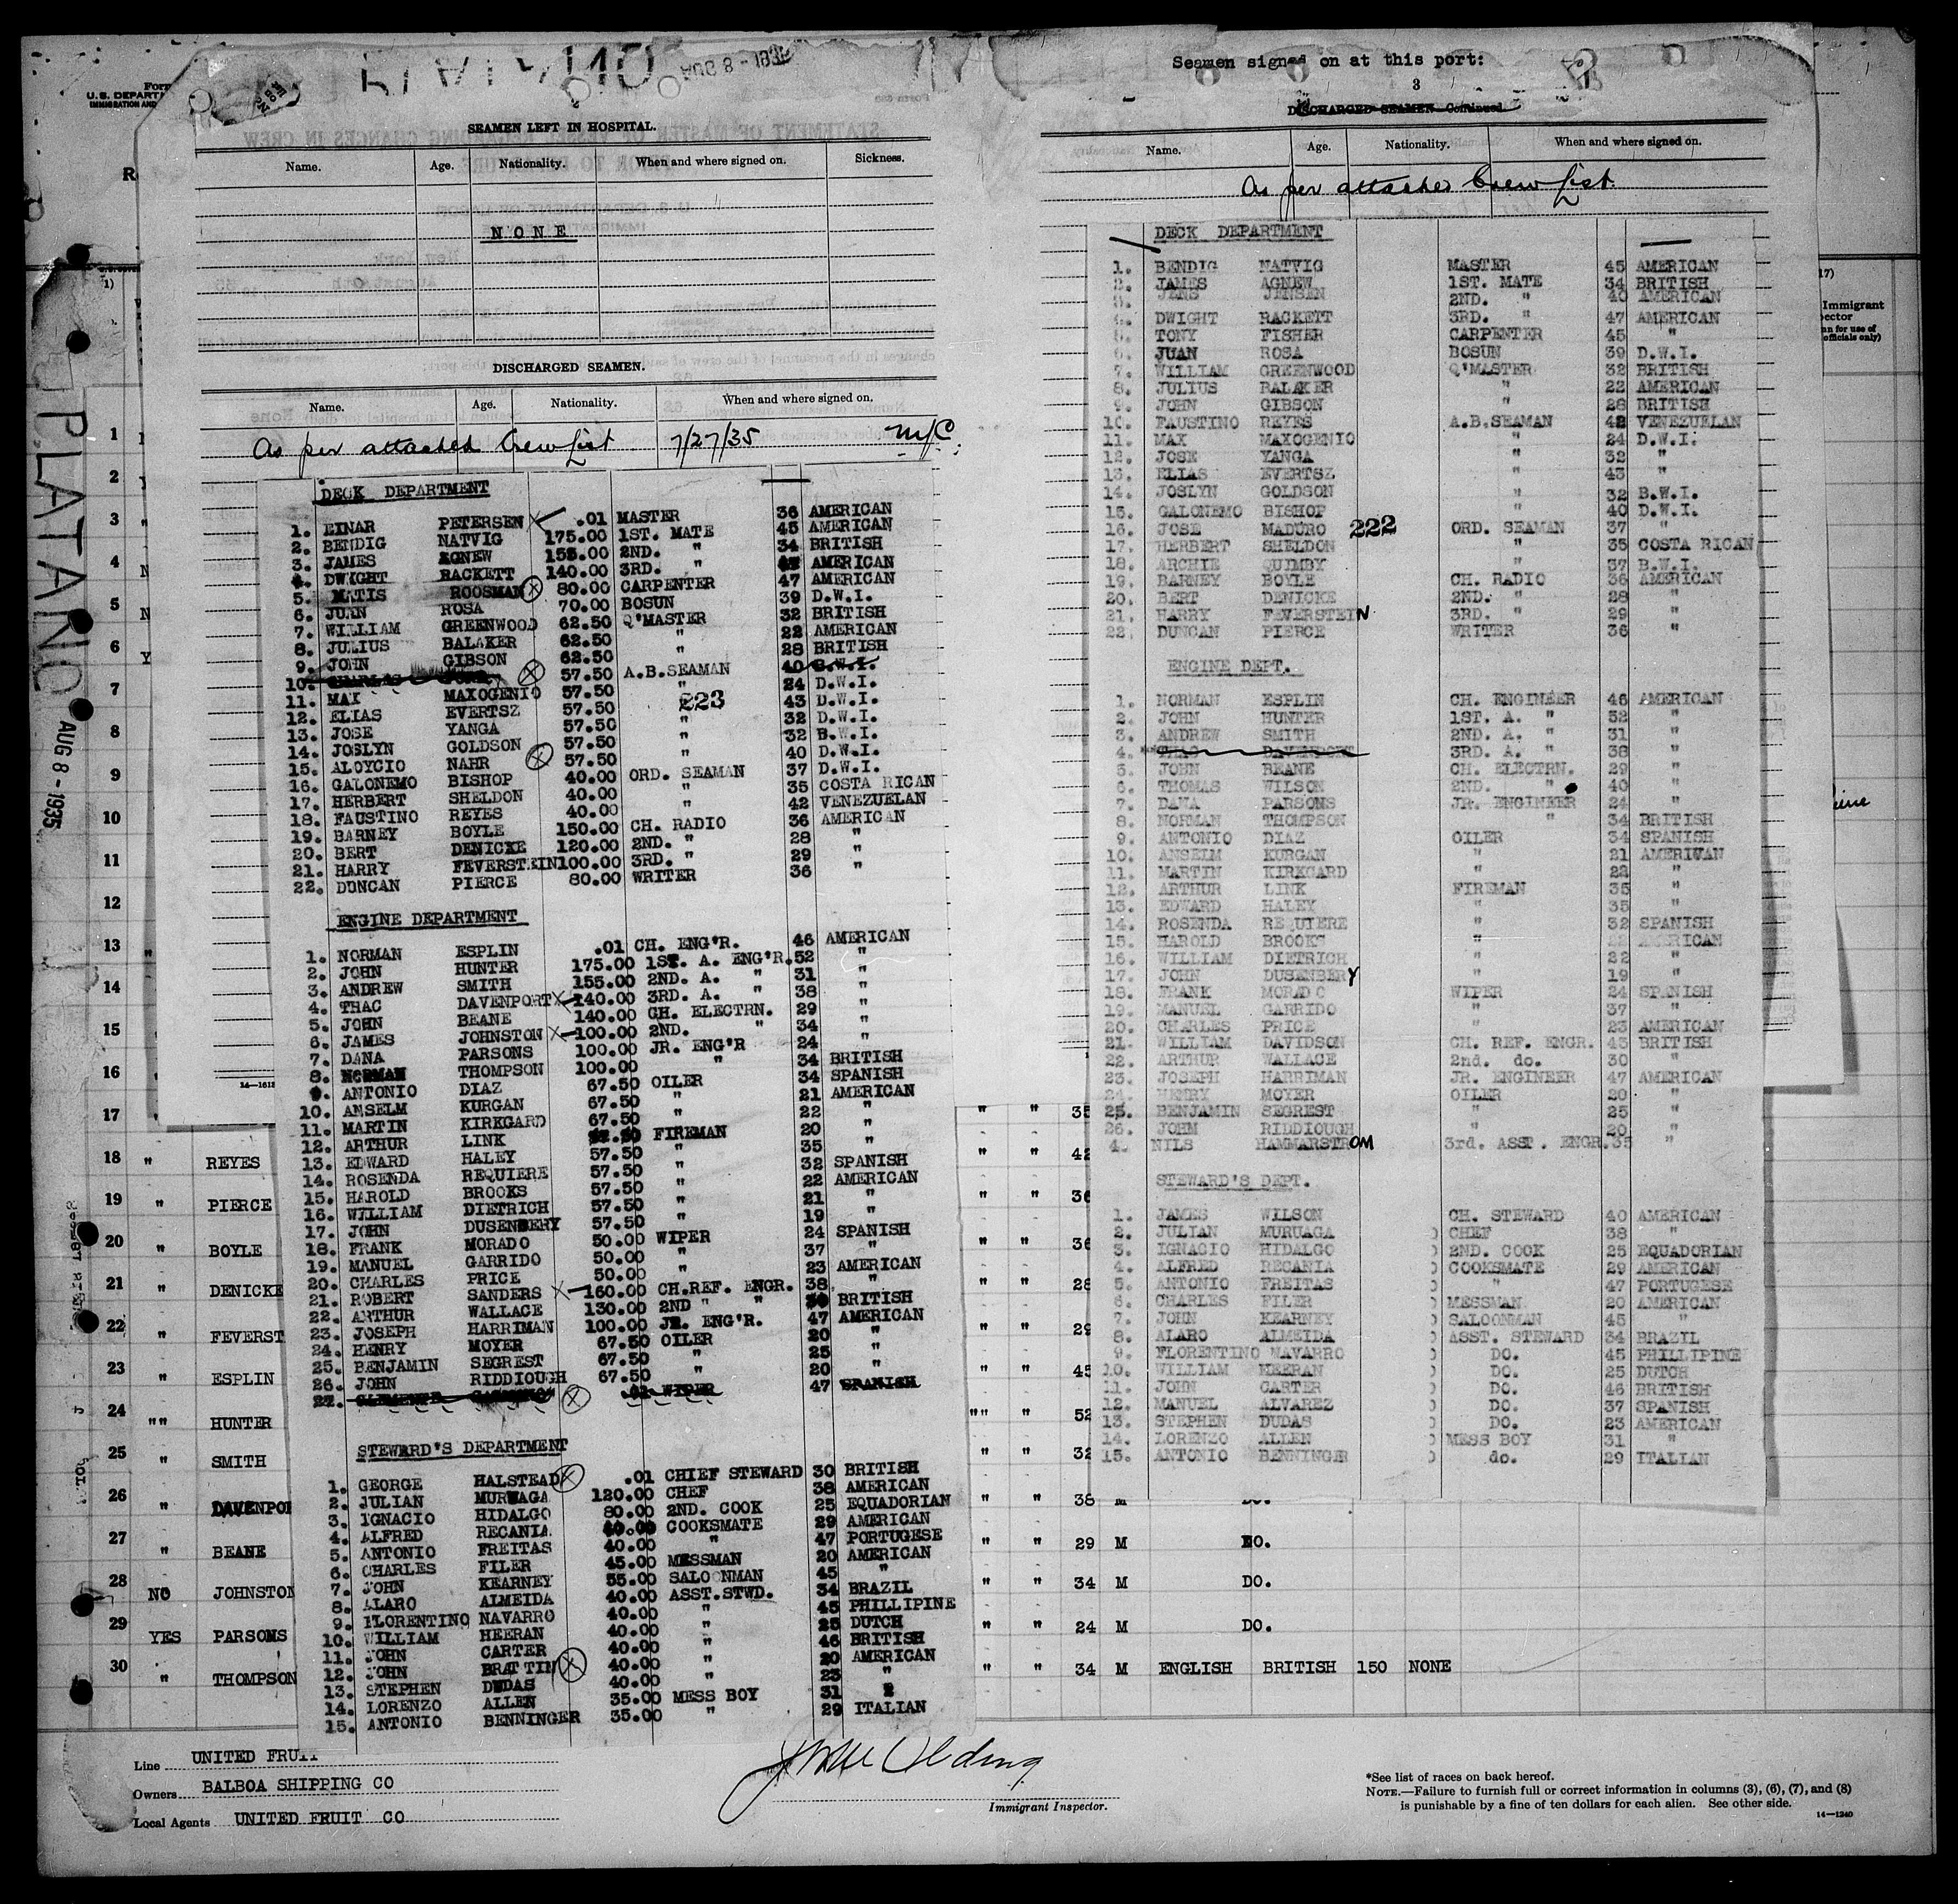 PLATANO
AUG 8 - 1935
SEAMEN LEFT IN HOSPITAL.
Name. Age. Nationality. When and where signed on. Sickness.
NONE
DISCHARGED SEAMEN.
Name. Age. Nationality. When and where signed on.
As per attached Crew List 7/27/35
DECK DEPARTMENT
1. EINAR PETERSEN .01 MASTER 36 AMERICAN
2. BENDIG NATVIG 175.00 1ST. MATE 45 AMERICAN
3. JAMES AGNEW 155.00 2ND. " 34 BRITISH
4. DWIGHT RACKETT 140.00 3RD. " AMERICAN
5. MATIS ROOSMAN 80.00 CARPENTER 47 AMERICAN
6. JUAN ROSA 70.00 BOSUN 39 D.W.I.
7. WILLIAM GREENWOOD 62.50 Q'MASTER 32 BRITISH
8. JULIUS BALAKER 62.50 " 22 AMERICAN
9. JOHN GIBSON 62.50 " 28 BRITISH
10. CHARLES 57.50 A.B.SEAMAN 40 B.W.I.
11. MAX MAXOGENIO 57.50 " 24 D.W.I.
223
12. ELIAS EVERTSZ 57.50 43 D.W.I.
13. JOSE YANGA 57.50 " 32 D.W.I.
14. JOSLYN GOLDSON 57.50 " 32 B.W.I.
15. ALOYCIO NAHR 57.50 " 40 D.W.I.
16. GALONEMO BISHOP 40.00 ORD. SEAMAN 37 D.W.I.
17. HERBERT SHELDON 40.00 " 35 COSTA RICAN
18. FAUSTINO REYES 40.00 " 42 VENEZUELAN
19. BARNEY BOYLE 150.00 CH. RADIO 36 AMERICAN
20. BERT DENICKE 120.00 2ND. " 28 "
21. HARRY FEVERSTEIN 100.00 3RD. " 29 "
22. DUNCAN PIERCE 80.00 WRITER 36 "
ENGINE DEPARTMENT
1. NORMAN ESPLIN .01 CH. ENG'R. 46 AMERICAN
2. JOHN HUNTER 175.00 1ST. A. ENG'R. 52 "
3. ANDREW SMITH 155.00 2ND. A. " 31 "
4. THAC DAVENPORT 140.00 3RD. A. " 38 "
5. JOHN BEANE 140.00 CH. ELECTRN. 29 "
6. JAMES JOHNSTON 100.00 2ND. " 34 "
7. DANA PARSONS 100.00 JR. ENG'R 24 "
8. NORMAN THOMPSON 100.00 " 34 BRITISH
9. ANTONIO DIAZ 67.50 OILER 34 SPANISH
10. ANSELM KURGAN 67.50 " 21 AMERICAN
11. MARTIN KIRKGARD 67.50 " 22 "
12. ARTHUR LINK FIREMAN 20 "
13. EDWARD HALEY 57.50 " 35 "
14. ROSENDA REQUIERE 57.50 " 32 SPANISH
15. HAROLD BROOKS 57.50 " 22 AMERICAN
16. WILLIAM DIETRICH 57.50 " 21 "
17. JOHN DUSENBERY 57.50 " 19 "
18. FRANK MORADO 50.00 WIPER 24 SPANISH
19. MANUEL GARRIDO 50.00 " 37 "
20. CHARLES PRICE 50.00 " 23 AMERICAN
21. ROBERT SANDERS 160.00 CH.REF. ENGR. 38 "
22. ARTHUR WALLACE 130.00 2ND " " BRITISH
23. JOSEPH HARRIMAN 100.00 JR. ENG'R. 47 AMERICAN
24. HENRY MOYER 67.50 OILER 20 "
25. BENJAMIN SEGREST 67.50 " 25 "
26. JOHN RIDDIOUGH 67.50 " 20 "
27. .01 WIPER 47 SPANISH
STEWARD'S DEPARTMENT
1. GEORGE HALSTEAD .01 CHIEF STEWARD 30 BRITISH
2. JULIAN MURUAGA 120.00 CHEF 38 AMERICAN
3. IGNACIO HIDALGO 80.00 2ND. COOK 25 EQUADORIAN
4. ALFRED RECANIA COOKSMATE 29 AMERICAN
5. ANTONIO FREITAS 40.00 " 47 PORTUGESE
6. CHARLES FILER 45.00 MESSMAN 20 AMERICAN
7. JOHN KEARNEY 55.00 SALOONMAN 45 "
8. ALARO ALMEIDA 40.00 ASST.STWD. 34 BRAZIL
9. FLORENTINO NAVARRO 40.00 " 45 PHILLIPINE
10. WILLIAM HEERAN 40.00 " 25 DUTCH
11. JOHN CARTER 40.00 " 46 BRITISH
12. JOHN BRATTIN 40.00 " 20 AMERICAN
13. STEPHEN DUDAS 40.00 " 23 "
14. LORENZO ALLEN 35.00 MESS BOY 31
15. ANTONIO BENNINGER 35.00 " 29 ITALIAN
Seamen signed on at this port:
3
DISCHARGED SEAMEN Continued
Name. Age. Nationality. When and where signed on.
As per attached Crew List.
DECK DEPARTMENT
1. BENDIG NATVIG MASTER 45 AMERICAN
2. JAMES AGNEW 1ST. MATE 34 BRITISH
3. JENS JENSEN 2ND. " 40 AMERICAN
4. DWIGHT RACKETT 3RD. " 47 AMERICAN
5. TONY FISHER CARPENTER 45 "
6. JUAN ROSA BOSUN 39 D.W.I.
7. WILLIAM GREENWOOD Q'MASTER 32 BRITISH
8. JULIUS BALAKER " 22 AMERICAN
9. JOHN GIBSON " 28 BRITISH
10. FAUSTINO REYES A.B.SEAMAN 42 VENEZUELAN
11. MAX MAXOGENIO " 24 D.W.I.
12. JOSE YANGA " 32 "
13. ELIAS EVERTSZ " 43 "
14. JOSLYN GOLDSON " 32 B.W.I.
15. GALONEMO BISHOP " 40 D.W.I.
16. JOSE MADURO 222 ORD. SEAMAN 37 "
17. HERBERT SHELDON " 35 COSTA RICAN
18. ARCHIE QUIMBY " 37 B.W.I.
19. BARNEY BOYLE CH. RADIO 36 AMERICAN
20. BERT DENICKE 2ND. " 28 "
21. HARRY FEVERSTEIN 3RD. " 29 "
22. DUNCAN PIERCE WRITER 36 "
ENGINE DEPT.
1. NORMAN ESPLIN CH. ENGINEER 46 AMERICAN
2. JOHN HUNTER 1ST. A. " 52 "
3. ANDREW SMITH 2ND. A. " 31 "
4. THAC DAVENPORT 3RD. A. " 38 "
5. JOHN BEANE CH. ELECTRN. 29 "
6. THOMAS WILSON 2ND. " 40 "
7. DANA PARSONS JR. ENGINEER 24 "
8. NORMAN THOMPSON " 34 BRITISH
9. ANTONIO DIAZ OILER 34 SPANISH
10. ANSELM KURGAN " 21 AMERICAN
11. MARTIN KIRKGARD " 22 "
12. ARTHUR LINK FIREMAN 35 "
13. EDWARD HALEY " 35 "
14. ROSENDA REQUIERE " 32 SPANISH
15. HAROLD BROOKS " 22 AMERICAN
16. WILLIAM DIETRICH " 22 "
17. JOHN DUSENBERY " 19 "
18. FRANK MORADO WIPER 24 SPANISH
19. MANUEL GARRIDO " 37 "
20. CHARLES PRICE " 23 AMERICAN
21. WILLIAM DAVIDSON CH. REF. ENGR. 43 BRITISH
22. ARTHUR WALLACE 2nd. do. 30 "
23. JOSEPH HARRIMAN JR. ENGINEER 47 AMERICAN
24. HENRY MOYER OILER 20 "
25. BENJAMIN SEGREST " 25 "
26. JOHN RIDDIOUGH " 20 "
4. NILS HAMMARSTROM 3rd. ASST. ENGR. 35 "
STEWARD'S DEPT.
1. JAMES WILSON CH. STEWARD 40 AMERICAN
2. JULIAN MURUAGA CHEF 38 "
3. IGNACIO HIDALGO 2ND. COOK 25 EQUADORIAN
4. ALFRED RECANIA COOKSMATE 29 AMERICAN
5. ANTONIO FREITAS " 47 PORTUGESE
6. CHARLES FILER MESSMAN 20 AMERICAN
7. JOHN KEARNEY SALOONMAN 45 "
8. ALARO ALMEIDA ASST. STEWARD 34 BRAZIL
9. FLORENTINO NAVARRO DO. 45 PHILLIPINE
10. WILLIAM HEERAN DO. 25 DUTCH
11. JOHN CARTER DO. 46 BRITISH
12. MANUEL ALVAREZ DO. 37 SPANISH
13. STEPHEN DUDAS DO. 23 AMERICAN
14. LORENZO ALLEN MESS BOY 31 "
15. ANTONIO BENNINGER do. 29 ITALIAN
17)
Immigrant
1
2
3
4 N
5 N
6 Y
7
8
9
10
11
12
13
14
15
16
17 " " 35
18 " REYES " " 42
19 " PIERCE " " 36
20 " BOYLE " " 36
21 " DENICKE " " 28
22 " FEVERST " " 29
23 " ESPLIN " " 45
24 "" HUNTER "" " 52
25 " SMITH " " 32
26 " DAVENPOR " " 38 M DO.
27 " BEANE " " 29 M DO.
28 NO JOHNSTON " " 34 M DO.
29 YES PARSONS " " 24 M DO.
30 " THOMPSON " " 34 M ENGLISH BRITISH 150 NONE
Line UNITED FRUIT
Owners BALBOA SHIPPING CO
Local Agents UNITED FRUIT CO
Immigrant Inspector.
*See list of races on back hereof.
NOTE.—Failure to furnish full or correct information in columns (3), (6), (7), and (8)
is punishable by a fine of ten dollars for each alien. See other side.
14—1240